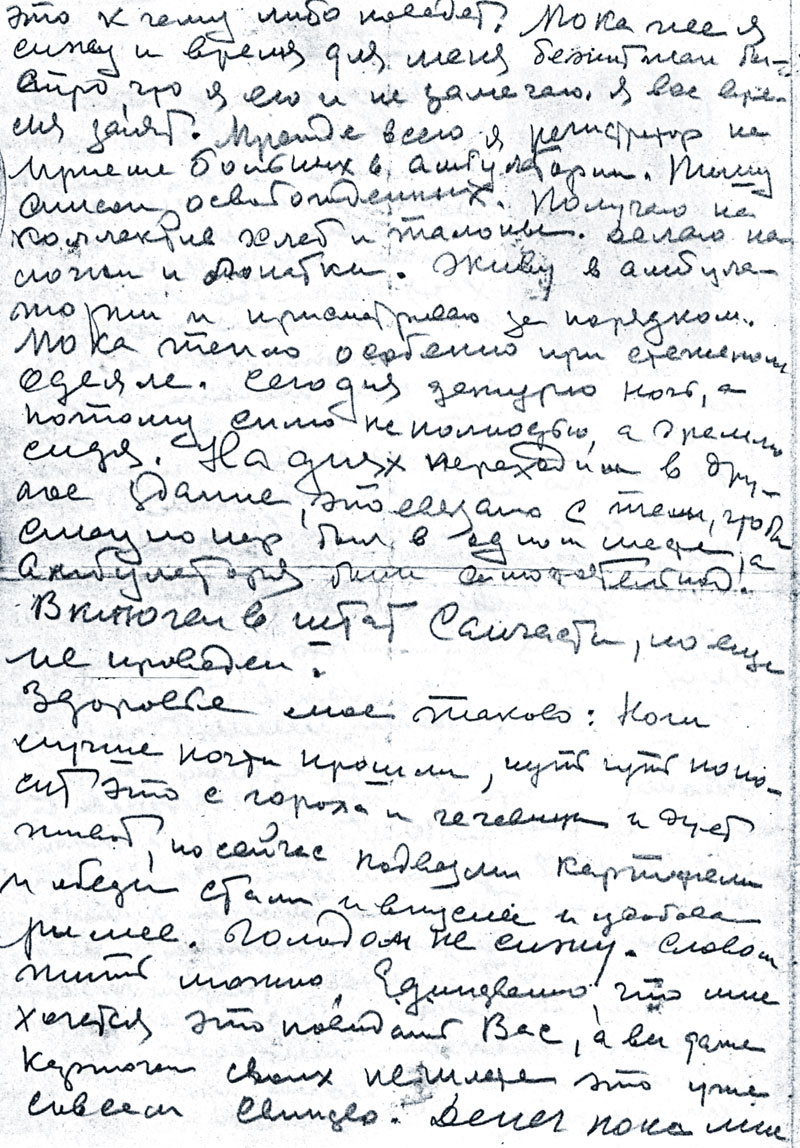 это к чему либо поведет? Пока же я
сижу и время для меня бежит так бы-
стро, что я его и не замечаю. Я все вре-
мя занят. Прежде всего я регистратор на
приеме больных в амбулатории. Пишу
списки освобожденных. Получаю на
коллектив хлеб и талоны. Делаю на
и лопатки. Живу в амбула-
тории и присматриваю за порядком.
Пока тепло особенно при стеженом
одеяле. Сегодня дежурю ночь, а
потому сплю не полностью, а дремлю
сидя. На днях переходим в дру-
гое здание, это связано с тем, чтобы
стационар был в одном месте, а
амбулатория была самостоятельной.
Включен в штат Санчасти, но еще
не проведен.
Здоровье мое таково: Ноги
лучше почти прошли, чуть чуть поно-
сит это с гороха и чечевицы и дует
живот, но сейчас подвезли картофель
и обеды стали и вкуснее и удобова-
римее. Голодом не сижу. Словом
жить можно. Единственно, что мне
хочется это повидать Вас, а вы даже
карточек своих не шлете это уже
совсем свинство. Денег пока мне